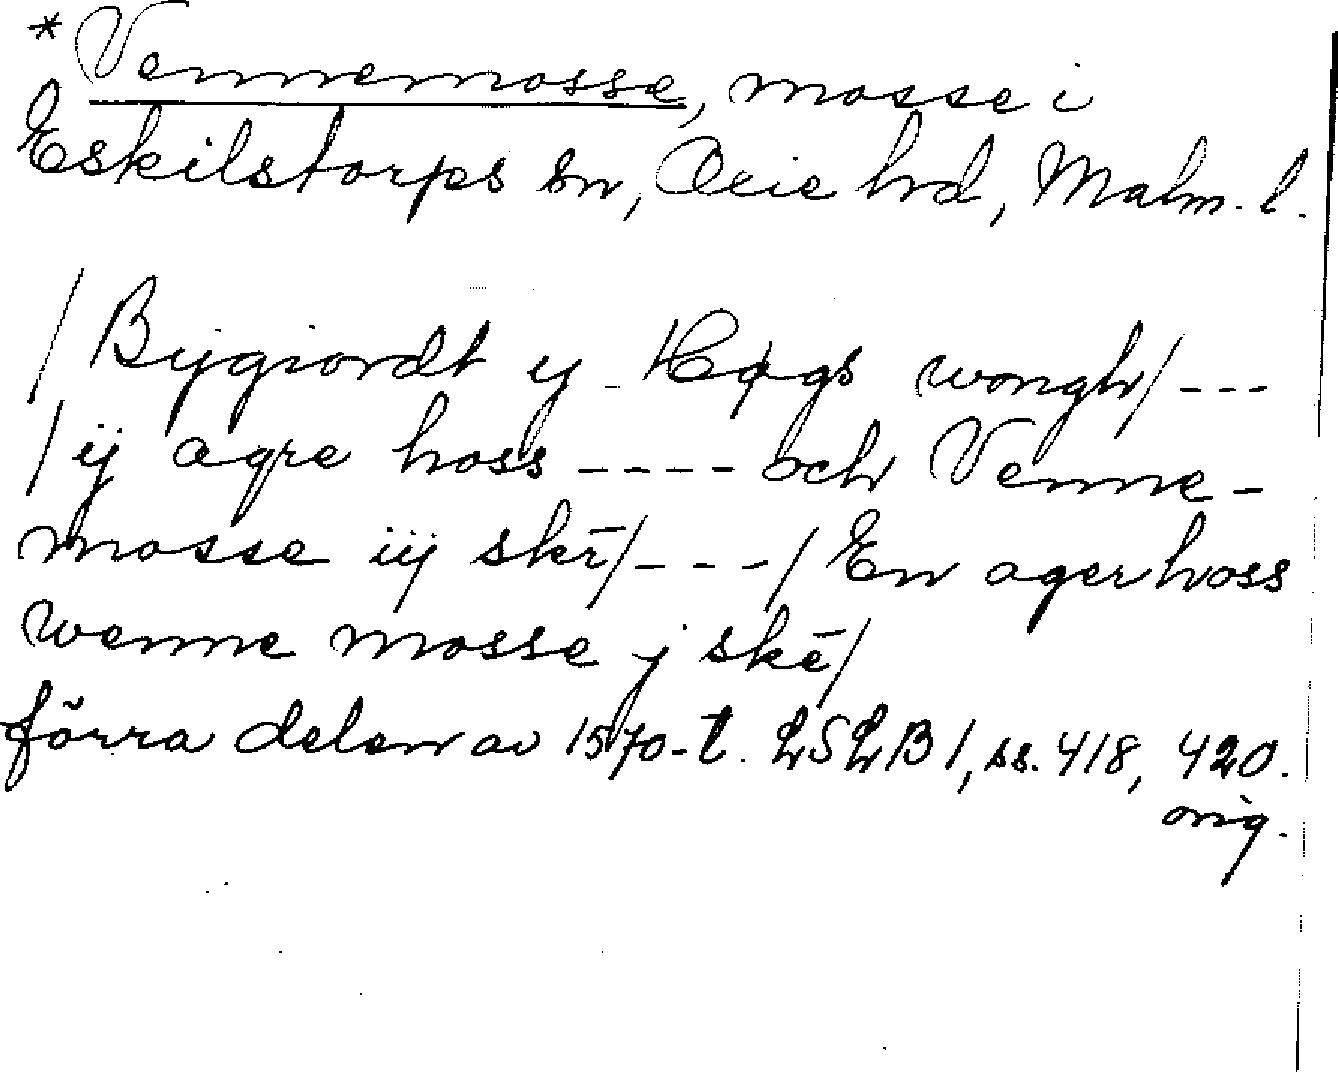 * Vennemosse, mosse i
Eskilstorps sn, Oxie hd, Malm. l.
/ Bÿgiordt y Høgs wongh / ---
/ ij agre hoss ---- och Venne-
mosse iij skē / --- / En ager hoss
wenne mosse j skē /
förra delen av 1570-t. LSLB 1, ss. 418, 420.
orig.